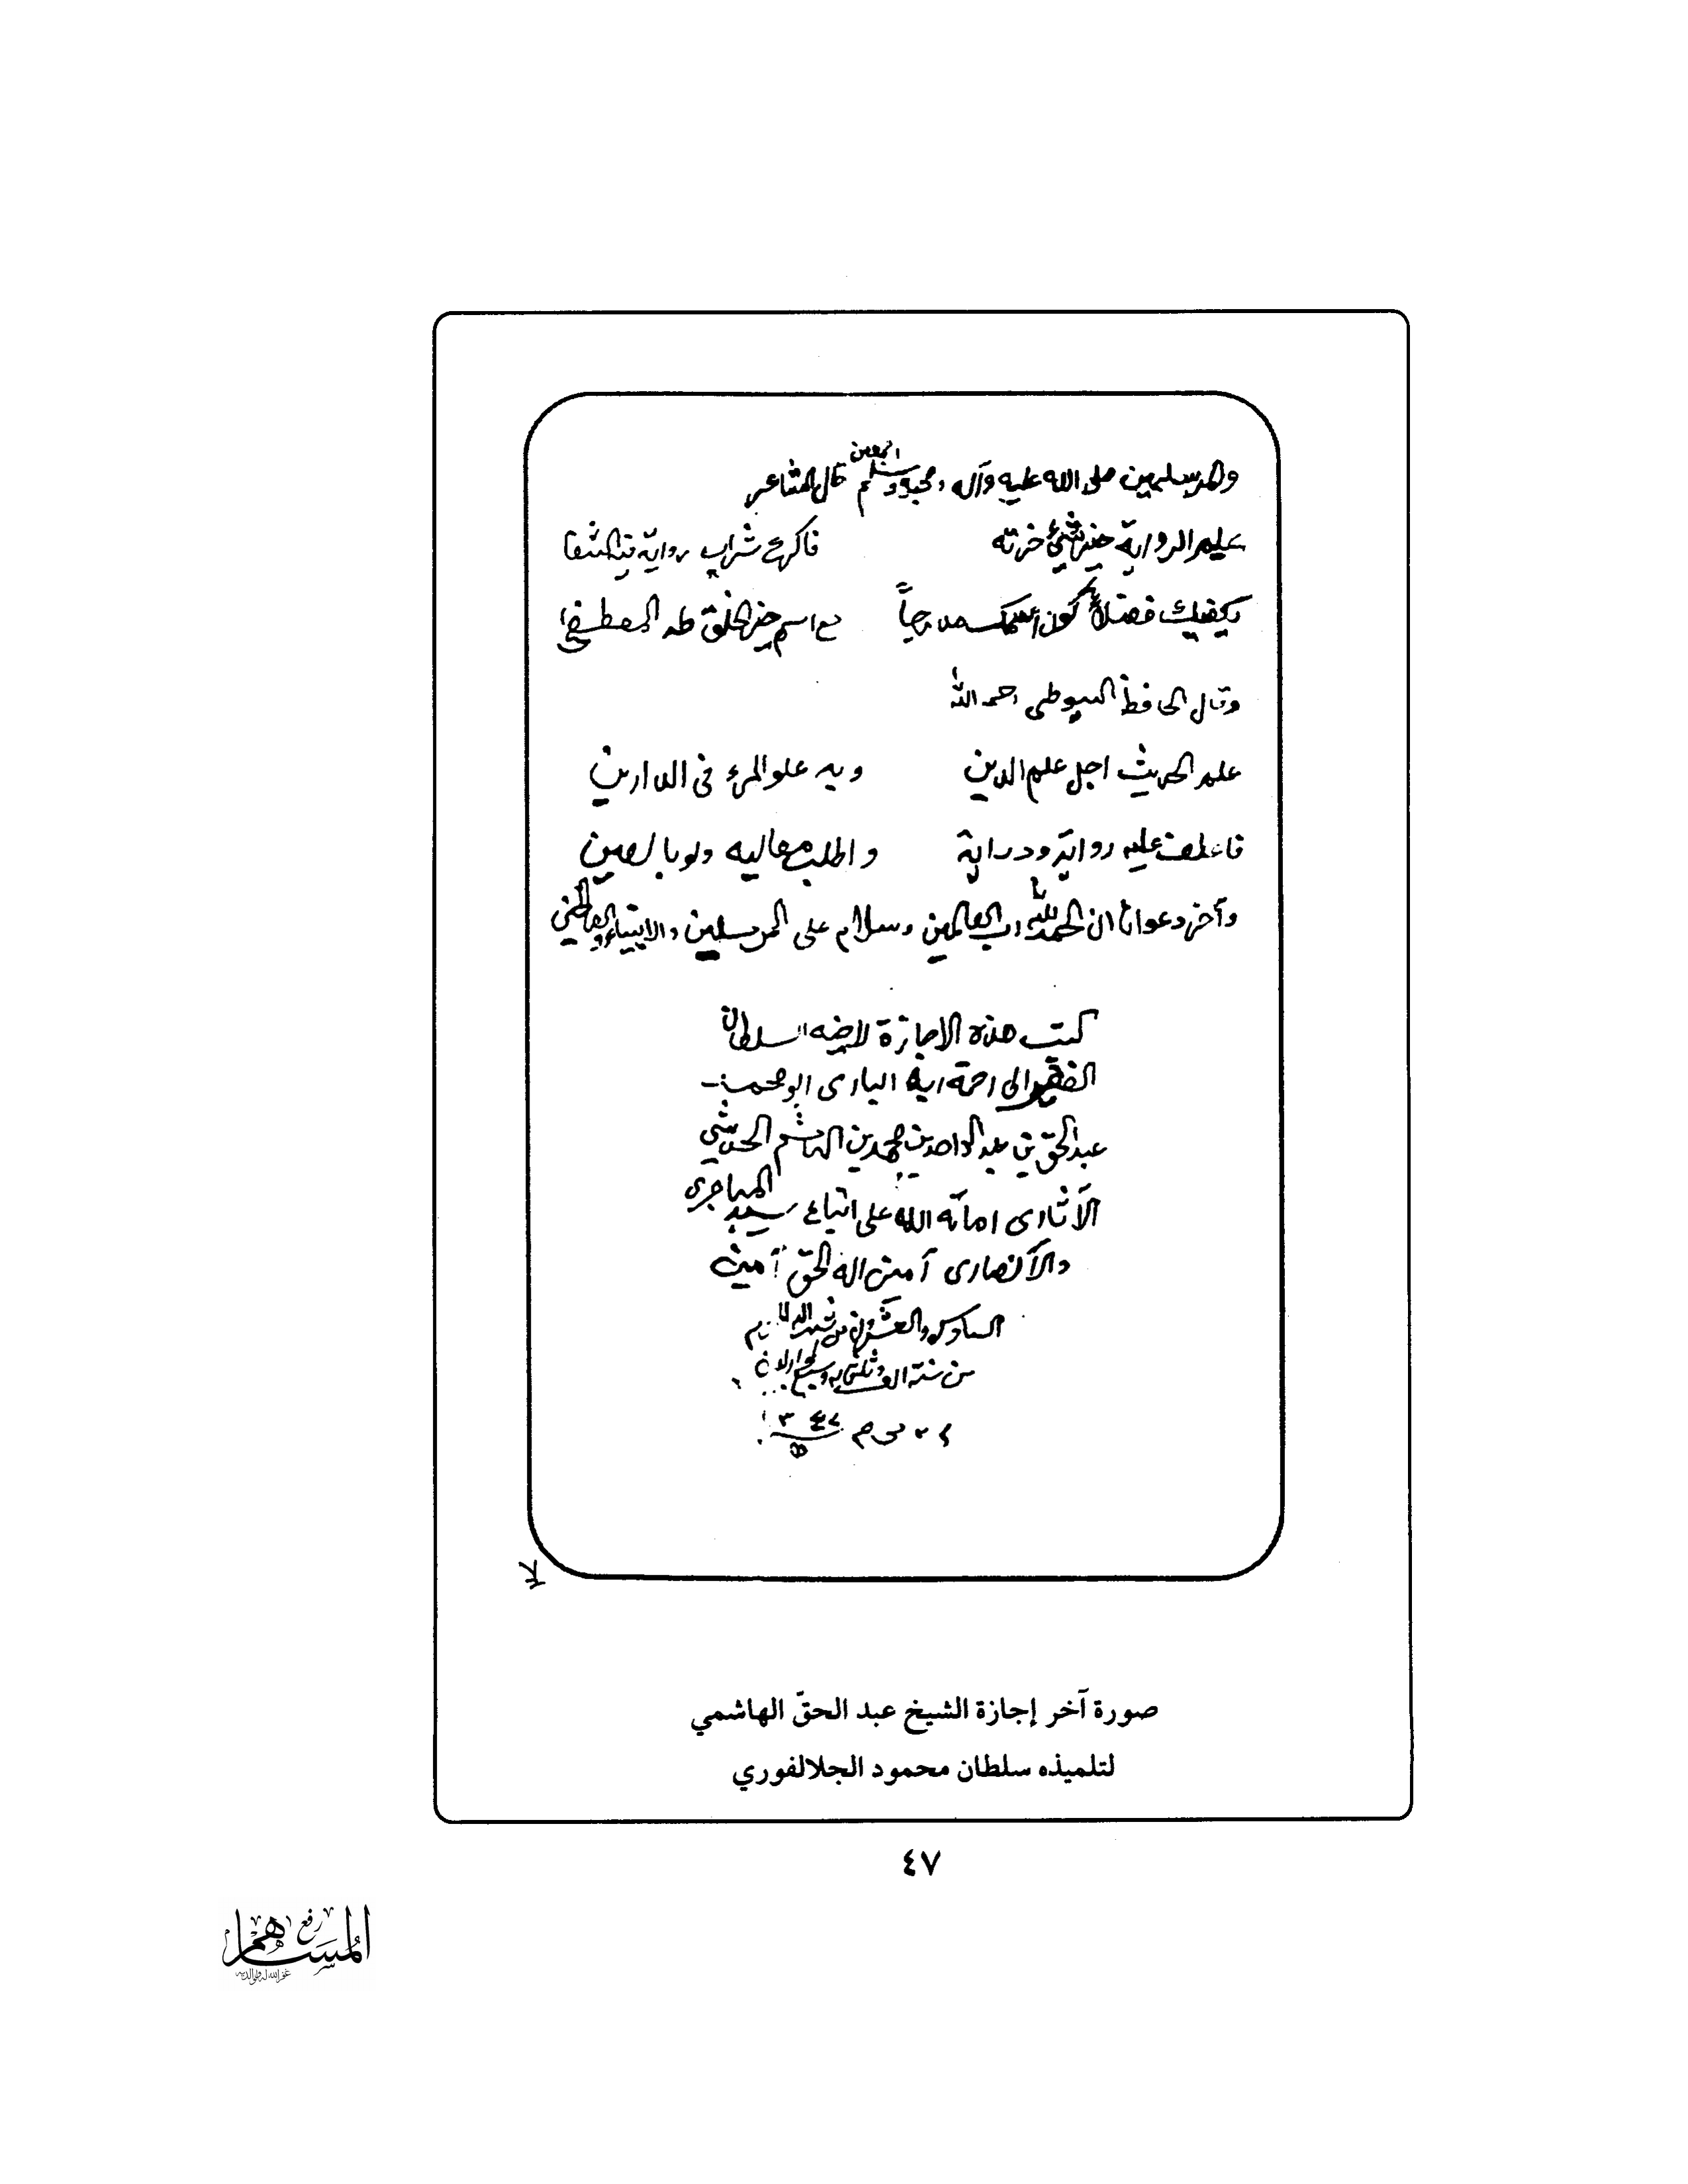 والمرسلين صلى الله عليه وآله وصحبه وسلم اجمعين قال الشاعر
علم الرواية خير شيء حزته فاكرع شراب رواية فيه الشفا
يكفيك فضلا كون اسمك مدرجاً مع اسم خير الخلق طه المصطفى
وقال الحافظ السيوطي رحمه الله
علم الحديث اجل علم الدين وبه علو المرء في الدارين
فاعطف عليه رواية ودراية واطلب معاليه ولو بالصين
وآخر دعوانا ان الحمد لله رب العالمين وسلام على المرسلين والانبياء
كتب هذه الاجازة لاخيه السلطان
الفقير الى رحمة ربه البارى ابو محمد
عبد الحق بن عبد الواحد بن محمد بن الهاشم
الآثارى اماته الله على اتباع المهاجرى
والأنصارى آمين اله الحق آمين
السادس والعشرون من شهر الله
من سنة الف وثلثمايه وسبع واربعين
١٣٤٧
صورة آخر إجازة الشيخ عبد الحقّ الهاشمي
لتلميذه سلطان محمود الجلالفوري
٤٧
المساهم
رفع
غفر الله له ولوالديه